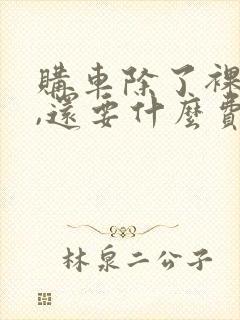 購車除了裸
,還要什麼費
林泉二公子